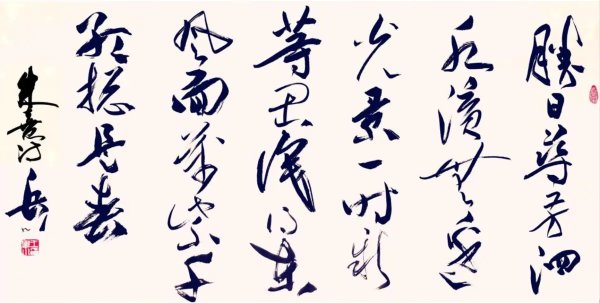 勝日尋芳泗
水濱無邊
光景一時新
等閒識得東
風面萬紫千
紅總是春
朱熹詩 岳